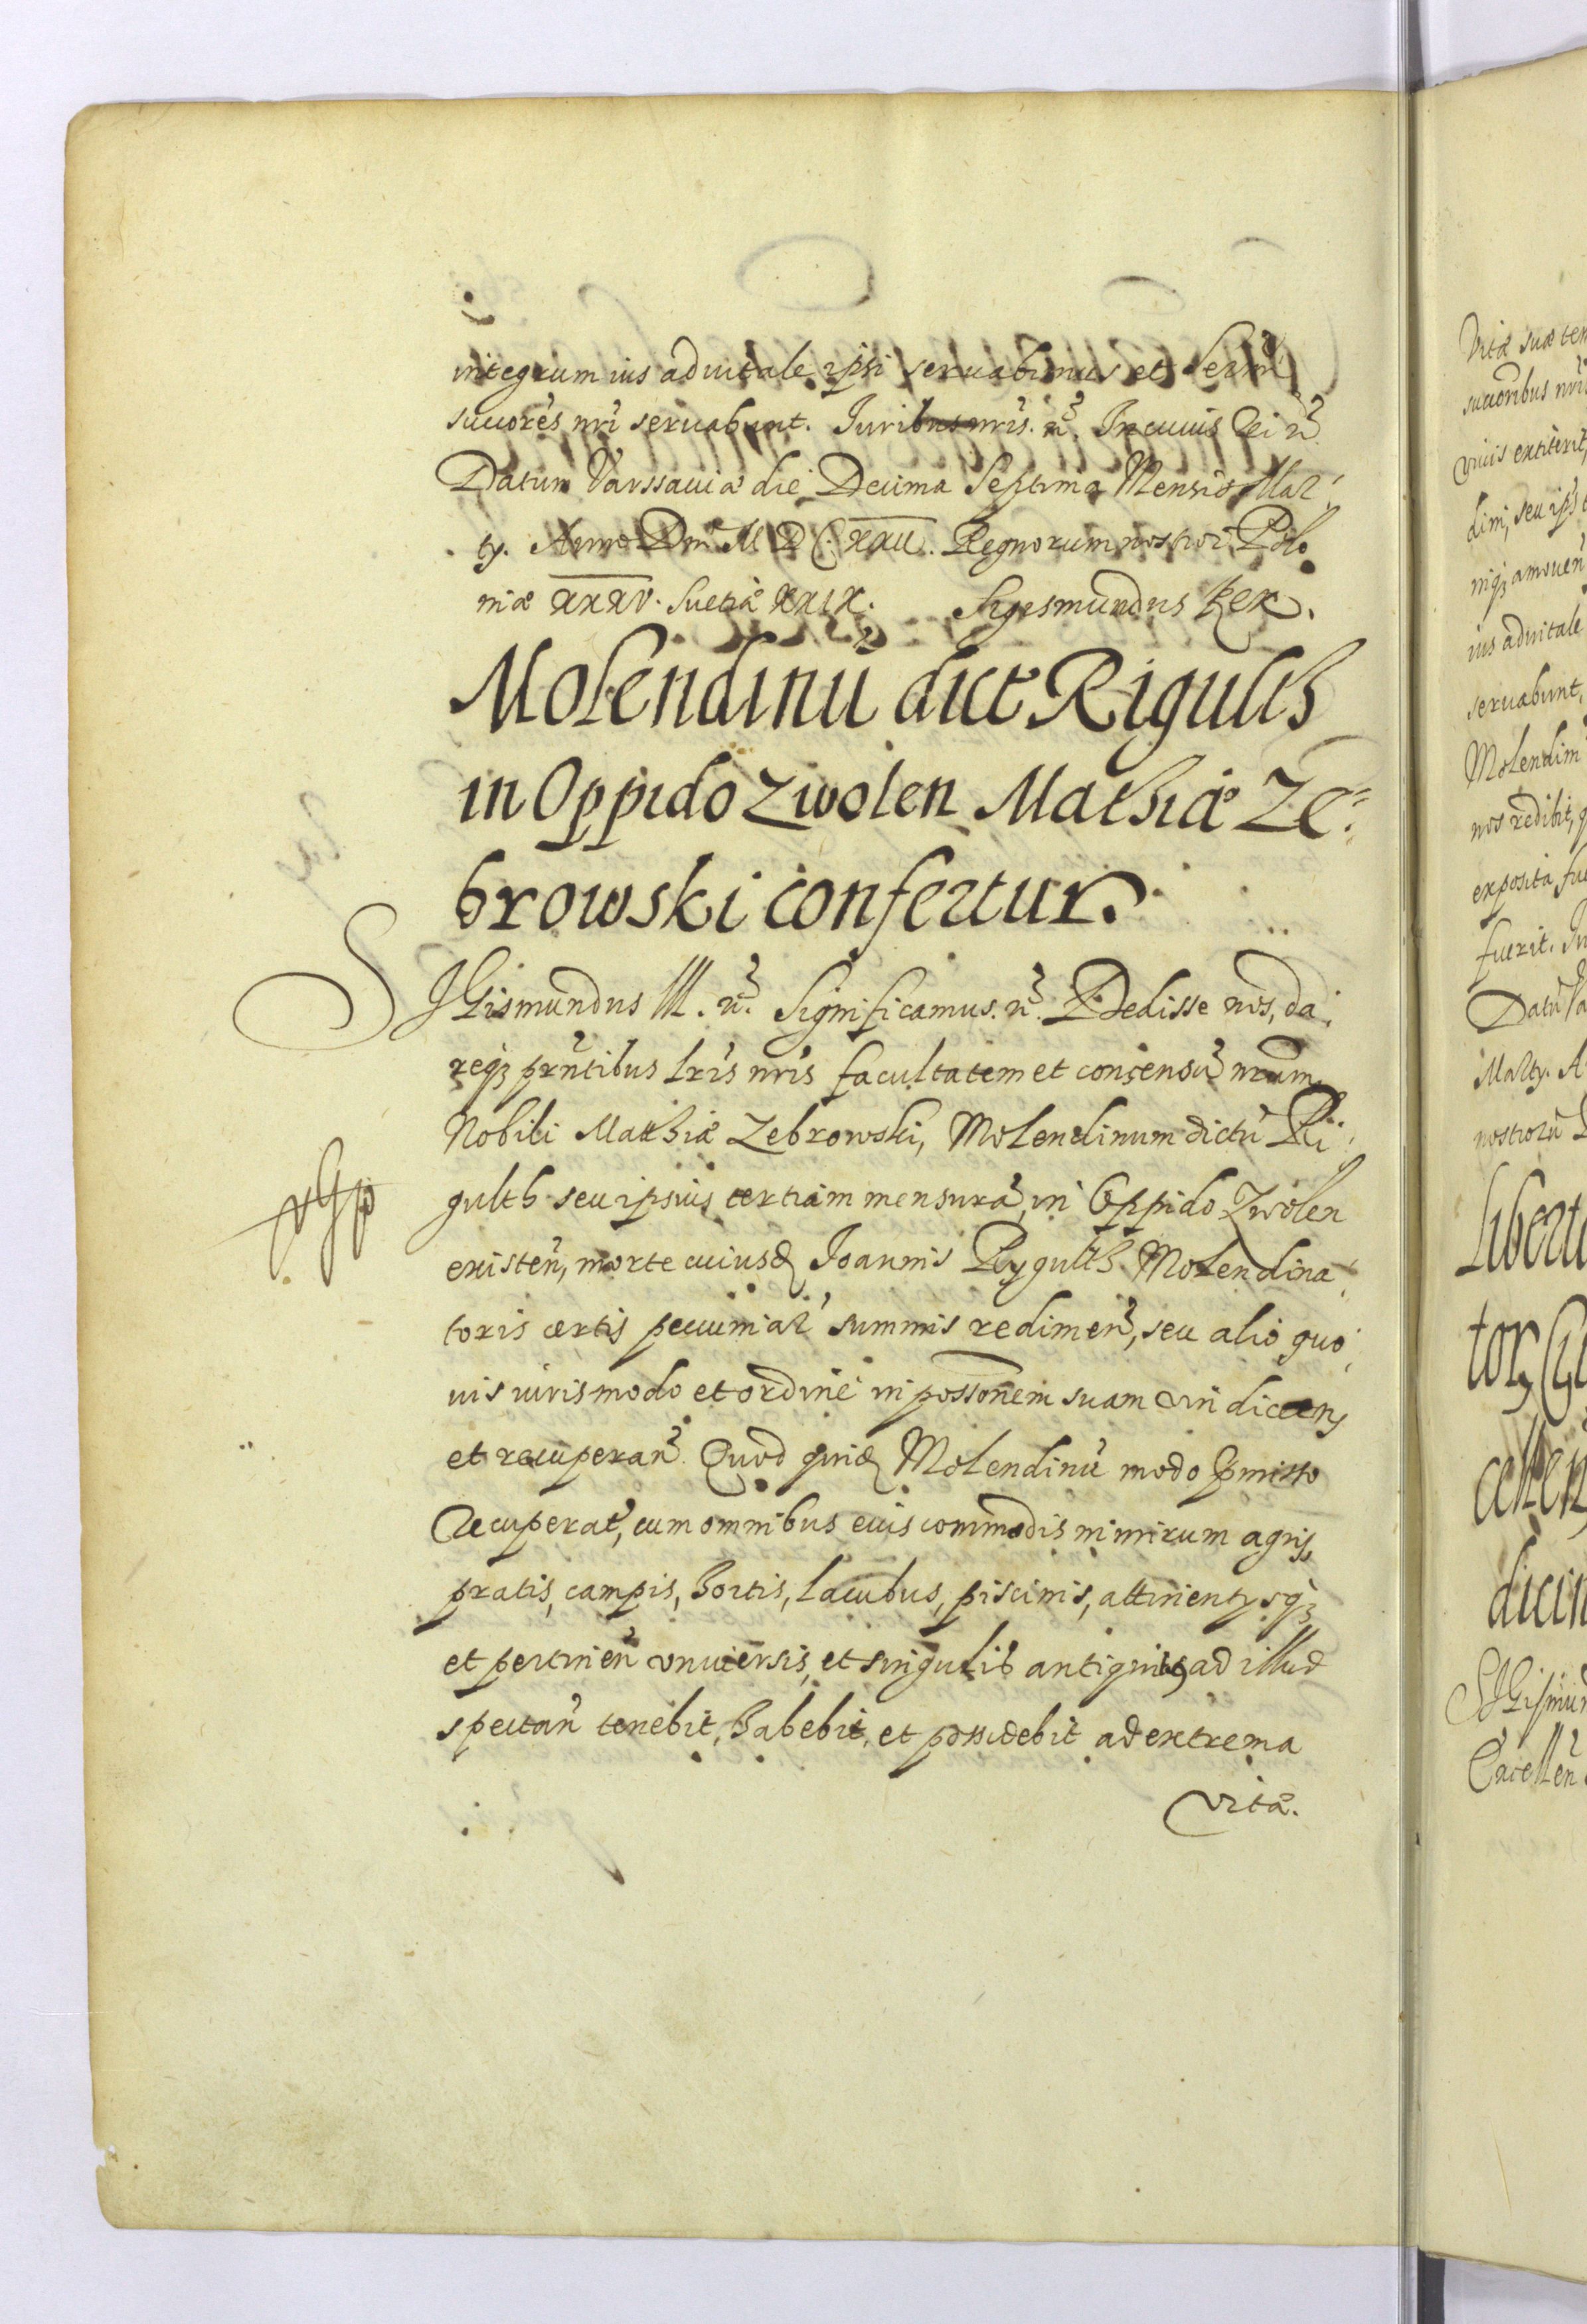 integrum ius aduitale ipsi seruabimus et Sermi
succorēs nrī seruabunt. Iuribus nris. etc. In cuius rei etc.
Datum Varssauiæ die Decima Septima Mensis Mar:
ty. Anno Dni M DC. XXII. Regnorum nostror Polo
niæ XXXV. Suetiæ XXIX. Sigismundus Rex.
Molendinū dict Rigulth
in Oppido Zwolen Mathiæ Ze=
browski confertur.
SIGismundus III. etc. Significamus. etc. Dedisse nos, da:
reqz prntibus lris nris facultatem et consensū nrum
Nobili Mathiæ Zebrowski, Molendinum dictū Ri:
gulth seu ipsius tertiam mensurā, in Oppido Zwolen
existeñ, morte cuiusd Ioannis Rygulth Molendina:
toris certis pecuniar summis redimeñ, seu alio quo:
uis iuris modo et ordine in possonem suam vindicens
et recuperañ. Quod quid Molendinū modo pmisso
recuperat, cum omnibus eius commodis nimirum agris,
pratis, campis, hortis, lacubus, piscinis, attinentysqz
et pertineñ vniuersis, et singulis antiquitus ad illud
spectañ tenebit, habebit, et possidebit ad extrema
vitæ.
Vitæ suæ tem
succoribus nris
viuis extiterit,
dimi, seu ips
niqz amoueñ
ius aduitale
seruabunt,
Molendini
nos redibit, q
exposita fu
fuerit. Iu
Datū Va
Marty. A
nostrorū
Liberta
dicin
SIGismun
Excelleñ